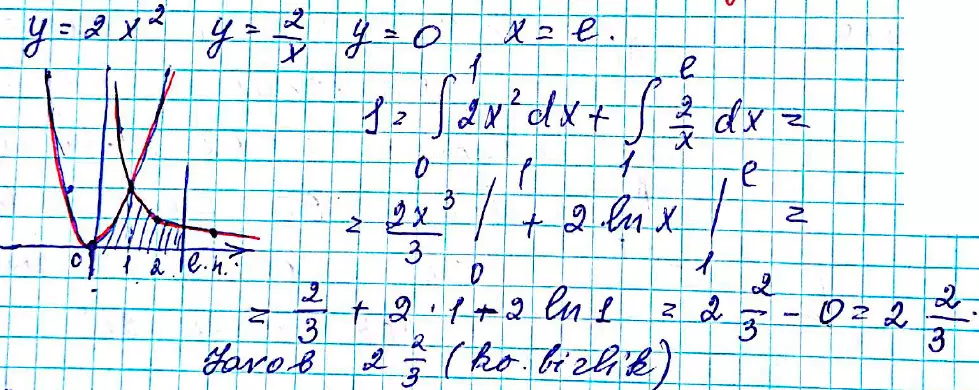 y = 2x² y = 2/x y = 0 x = e.
S = ∫₀¹ 2x² dx + ∫₁ᵉ 2/x dx =
= 2x³/3 |₀¹ + 2 ln x |₁ᵉ =
0 1 2 e.
= 2/3 + 2 · 1 + 2 ln 1 = 2 2/3 - 0 = 2 2/3.
2 2/3 (kv. birlik)